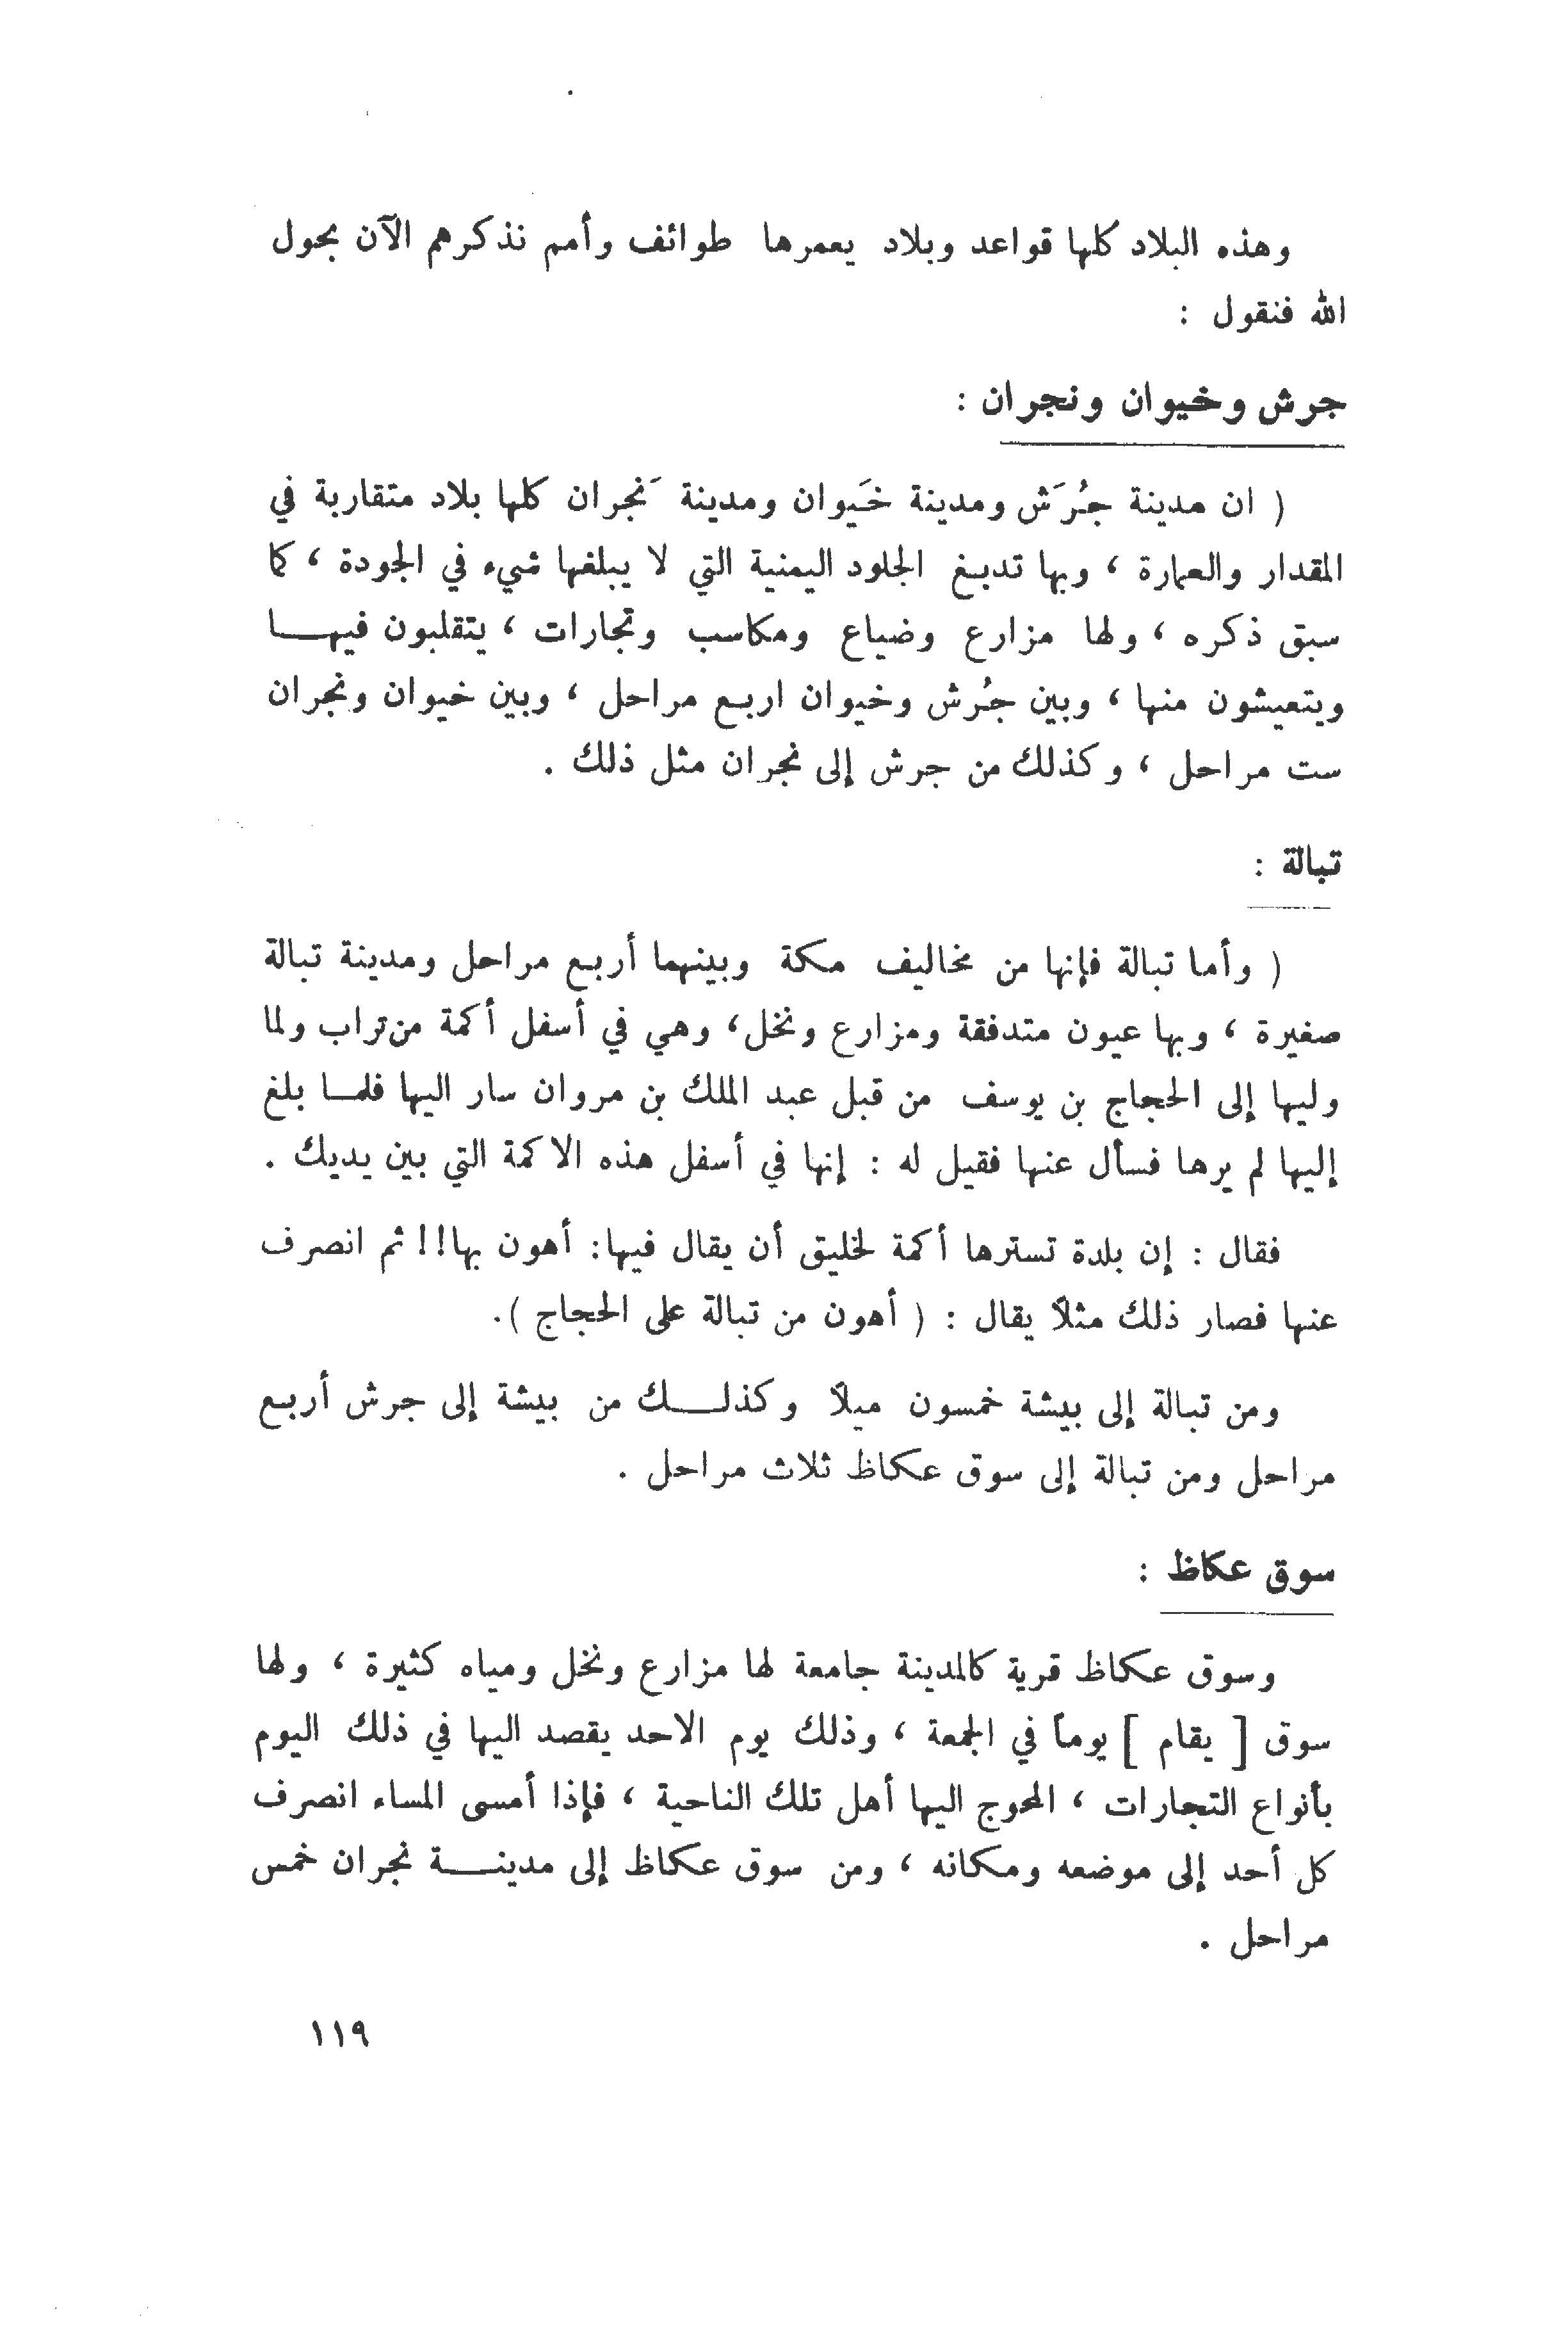 وهذه البلاد كلها قواعد وبلاد يعمرها طوائف وأمم نذكرهم الآن بحول
الله فنقول :
جرش وخيوان ونجران :
( ان مدينة جُرَش ومدينة خَيوان ومدينة نَجران كلها بلاد متقاربة في
المقدار والعمارة ، وبها تدبغ الجلود اليمنية التي لا يبلغها شيء في الجودة ، كما
سبق ذكره ، ولها مزارع وضياع ومكاسب وتجارات ، يتقلبون فيهـــا
ويتعيشون منها ، وبين جُرش وخيوان اربع مراحل ، وبين خيوان ونجران
ست مراحل ، وكذلك من جرش إلى نجران مثل ذلك .
تبالة :
( وأما تبالة فإنها من مخاليف مكة وبينهما أربع مراحل ومدينة تبالة
صغيرة ، وبها عيون متدفقة ومزارع ونخل، وهي في أسفل أكمة من تراب ولما
وليها إلى الحجاج بن يوسف من قبل عبد الملك بن مروان سار اليها فلمــا بلغ
إليها لم يرها فسأل عنها فقيل له : إنها في أسفل هذه الاكمة التي بين يديك .
فقال : إن بلدة تسترها أكمة لخليق أن يقال فيها: أهون بها!! ثم انصرف
عنها فصار ذلك مثلاً يقال : ( أهون من تبالة على الحجاج ).
ومن تبالة إلى بيشة خمسون ميلاً وكذلــك من بيشة إلى جرش أربع
مراحل ومن تبالة إلى سوق عكاظ ثلاث مراحل .
سوق عكاظ :
وسوق عكاظ قرية كالمدينة جامعة لها مزارع ونخل ومياه كثيرة ، ولها
سوق [ يقام ] يوماً في الجمعة ، وذلك يوم الاحد يقصد اليها في ذلك اليوم
بأنواع التجارات ، المحوج اليها أهل تلك الناحية ، فإذا أمسى المساء انصرف
كل أحد إلى موضعه ومكانه ، ومن سوق عكاظ إلى مدينـــة نجران خمس
مراحل .
١١٩